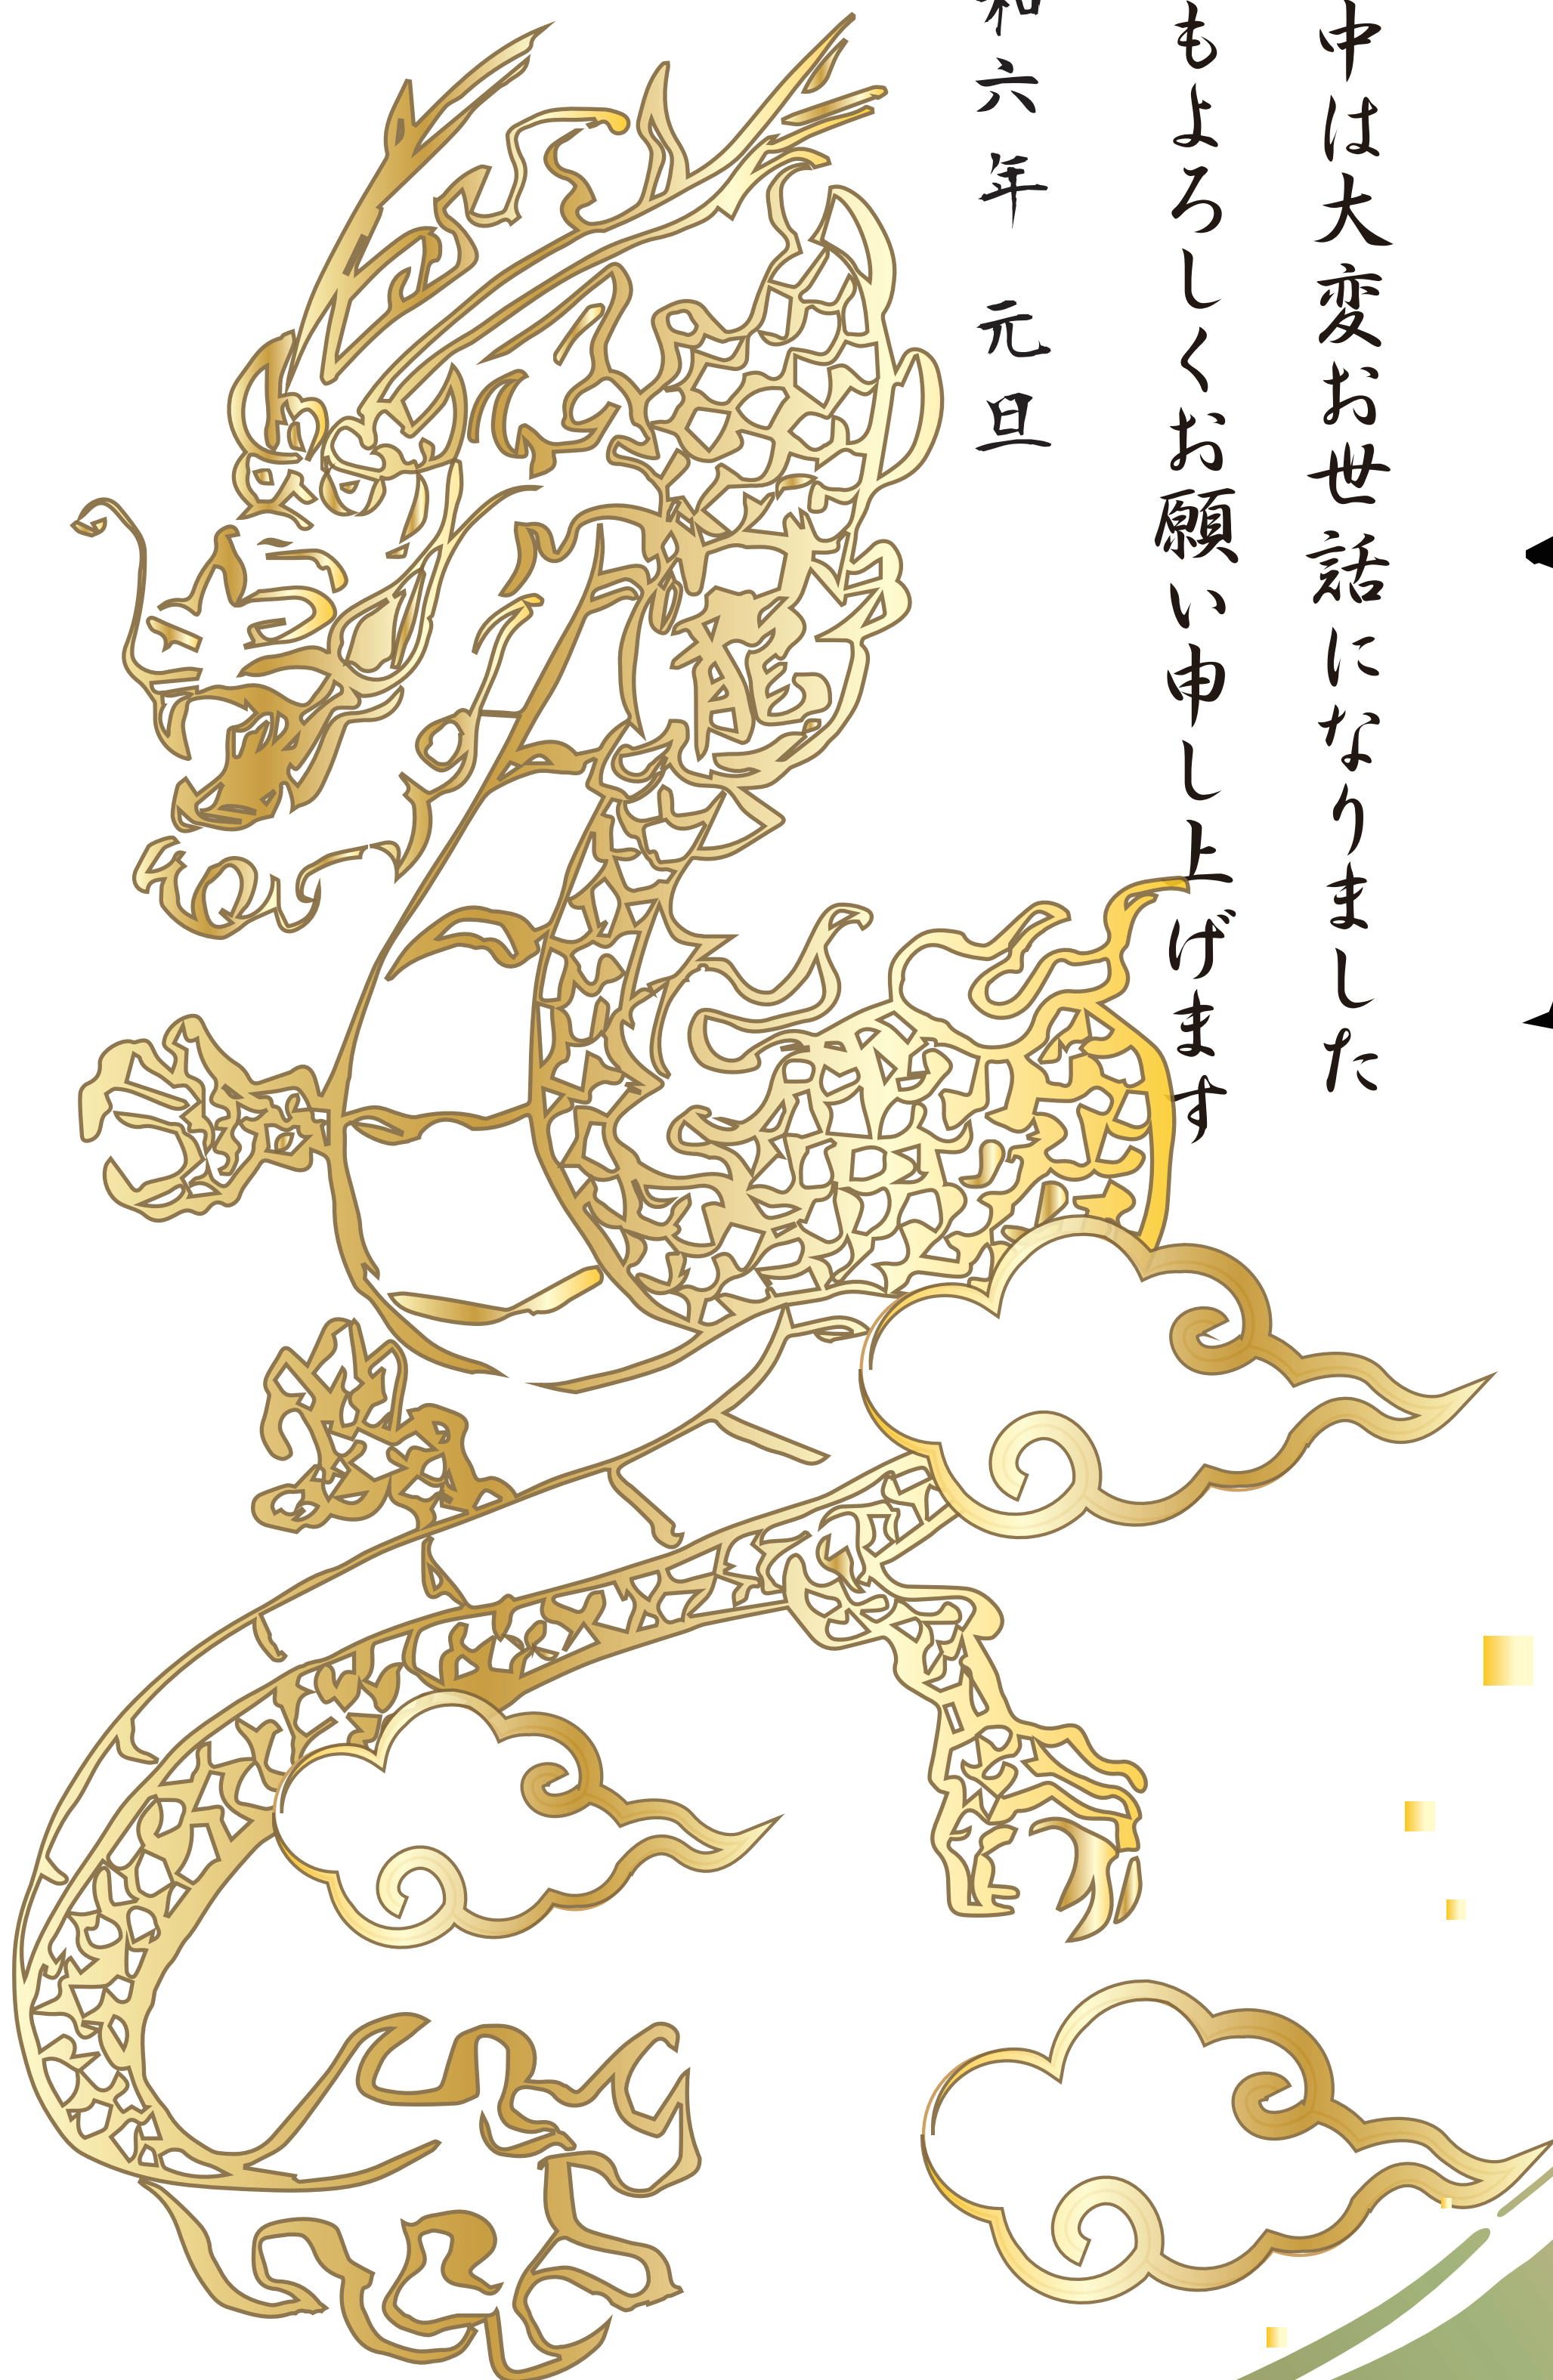 中は大変お世話になりました
もよろしくお願い申し上げます
和六年 元旦
龍